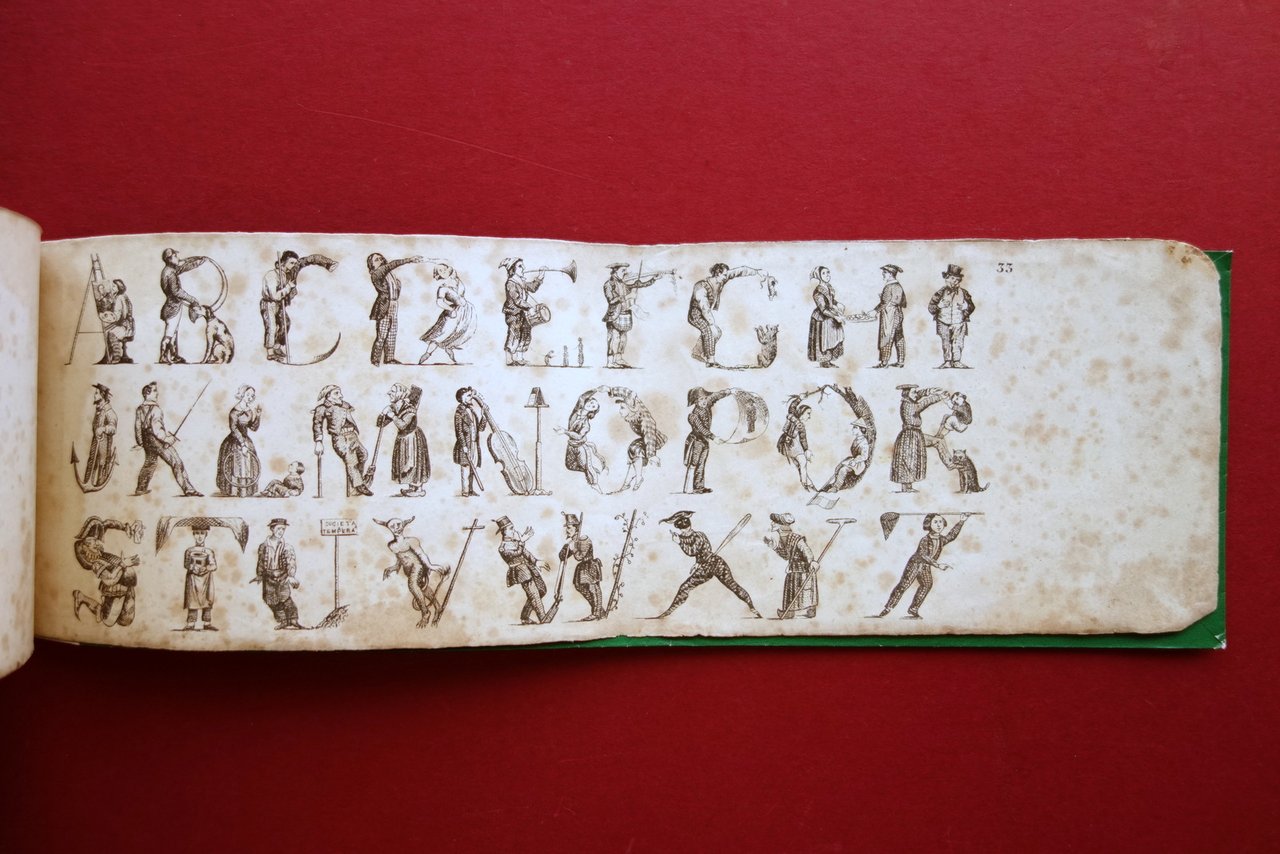 A B C D E F G H I
33
J K L M N O P Q R
S T U V W X Y Z
SOCIETA
TEMPERA